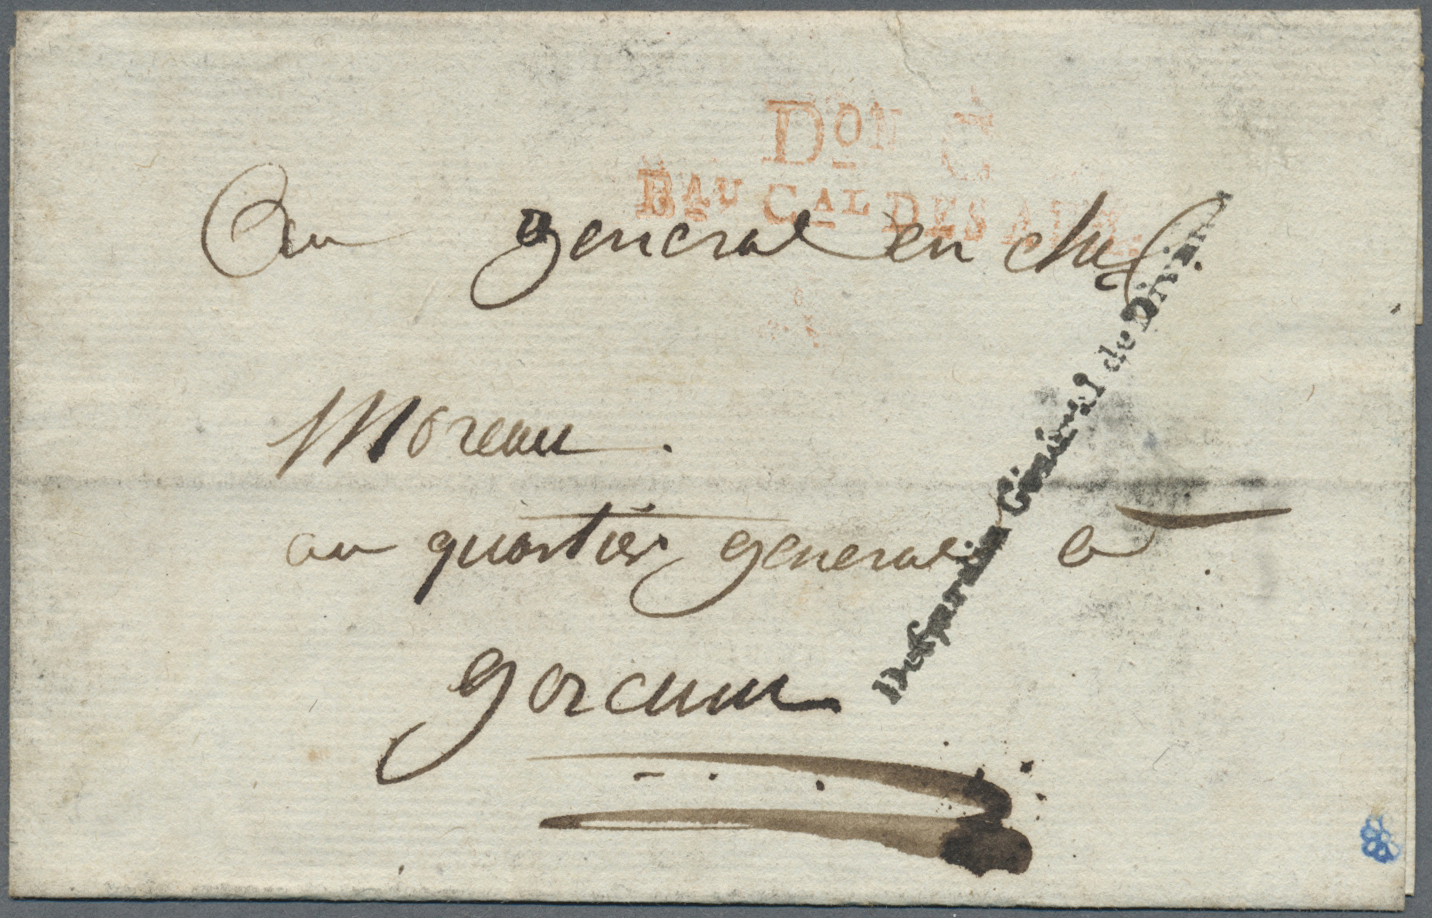 Don C
Bau Cal DES ARM.
au general en chef
Moreau.
au quartier general a
gorcum
Dejardin Général de Divisi